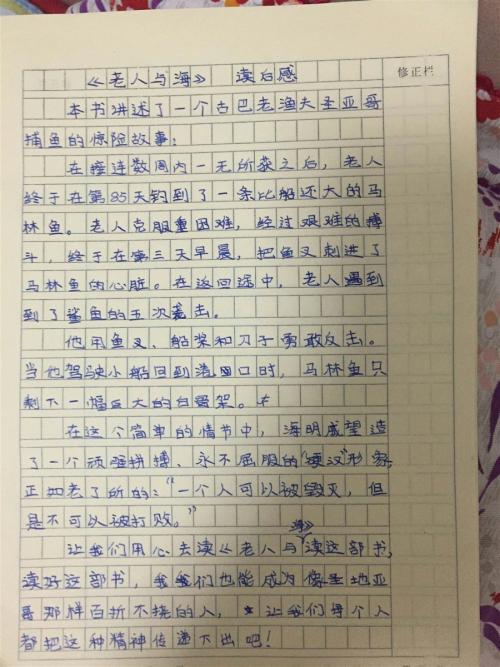 《老人与海》 读后感
修正栏
本书讲述了一个古巴老渔夫圣亚哥
捕鱼的惊险故事：
在接连数周内一无所获之后，老人
终于在第85天钓到了一条比船还大的马
林鱼。老人克服重困难，经过艰难的搏
斗，终于在第三天早晨，把鱼叉刺进了
马林鱼的心脏。在返回途中，老人遇到
到了鲨鱼的五次袭击。
他用鱼叉、船桨和刀子勇敢反击。
当他驾驶小船回到港口时，马林鱼只
剩下一幅巨大的白骨架。
在这个简单的情节中，海明威塑造
了一个顽强拼搏、永不屈服的“硬汉”形象，
正如老了所的：“一个人可以被毁灭，但
是不可以被打败。”
让我们用心去读《老人与海》读这部书，
读好这部书，我们也能成为像圣地亚
哥那样百折不挠的人，让我们每个人
都把这种精神传递下出吧！